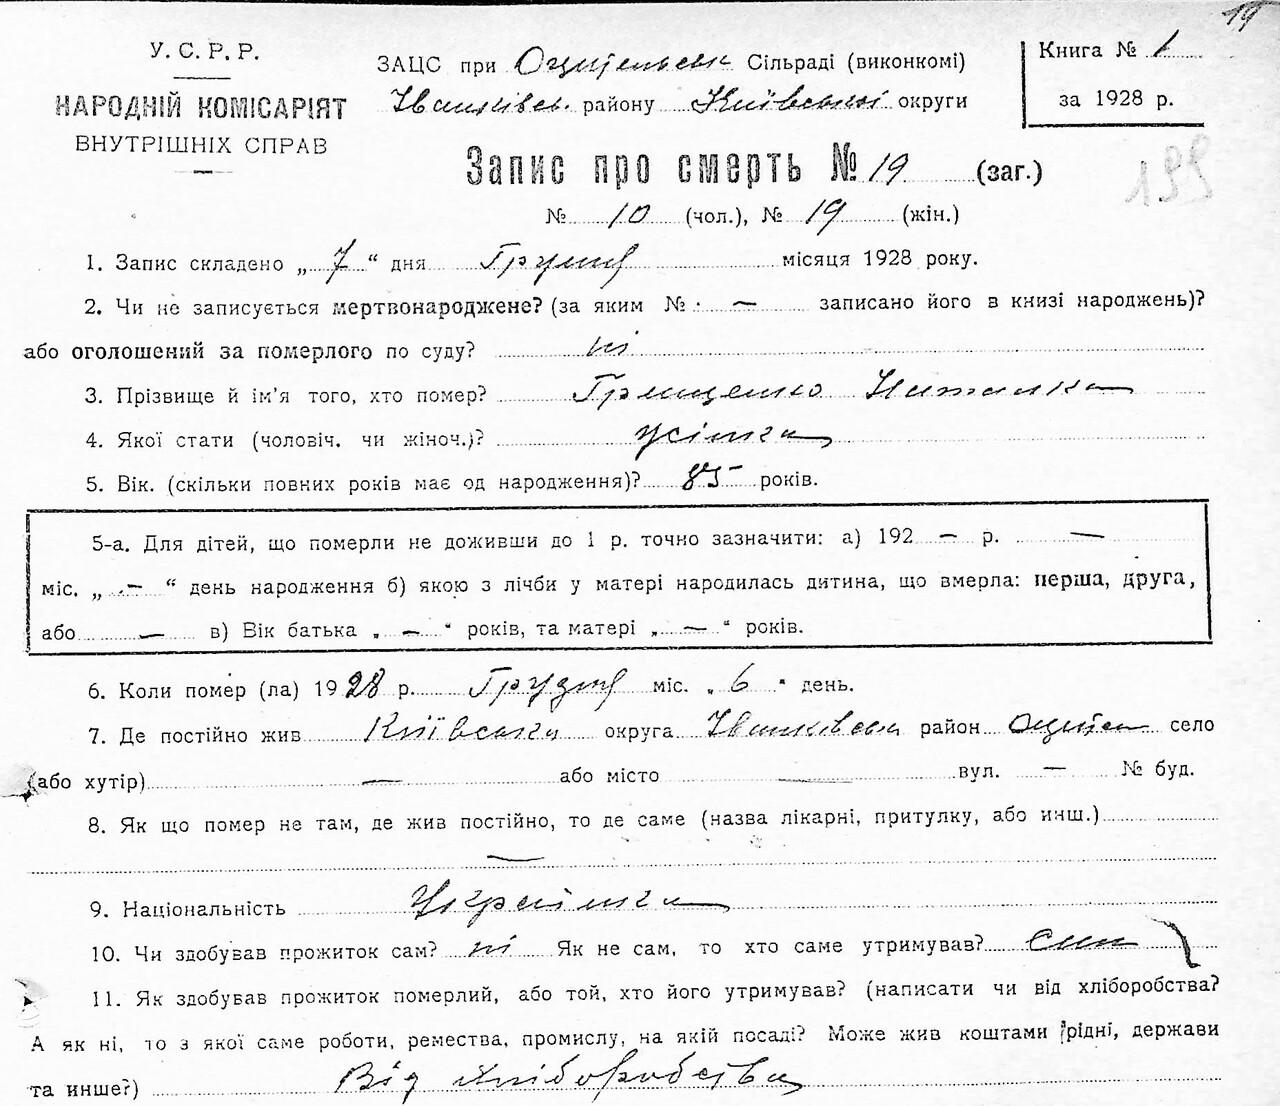 19
У. С. Р. Р.
НАРОДНІЙ КОМІСАРІЯТ
ВНУТРІШНІХ СПРАВ
ЗАЦС при Оцительськ Сільраді (виконкомі)
Іванківсь. району Київської округи
Книга № 1
за 1928 р.
Запис про смерть № 19 (заг.)
199
№ 10 (чол.), № 19 (жін.)
1. Запис складено „ 7 “ дня Грудня місяця 1928 року.
2. Чи не записується мертвонароджене? (за яким № — записано його в книзі народжень)?
або оголошений за померлого по суду? ні
3. Прізвище й ім'я того, хто помер? Грищенко Наталка
4. Якої стати (чоловіч. чи жіноч.)? жінка
5. Вік. (скільки повних років має од народження)? 85 років.
5-а. Для дітей, що померли не доживши до 1 р. точно зазначити: а) 192 — р. —
міс. „ — “ день народження б) якою з лічби у матері народилась дитина, що вмерла: перша, друга,
або — в) Вік батька „ — “ років, та матері „ — “ років.
6. Коли помер (ла) 1928 р. Грудня міс. „ 6 “ день.
7. Де постійно жив Київська округа Іванківськ район село
(або хутір) — або місто — вул. — № буд.
8. Як що помер не там, де жив постійно, то де саме (назва лікарні, притулку, або инш.)
—
9. Національність Українка
10. Чи здобував прожиток сам? ні Як не сам, то хто саме утримував? син
11. Як здобував прожиток померлий, або той, хто його утримував? (написати чи від хліборобства?
А як ні, то з якої саме роботи, ремества, промислу, на якій посаді? Може жив коштами рідні, держави
та инше?) Від хліборобства